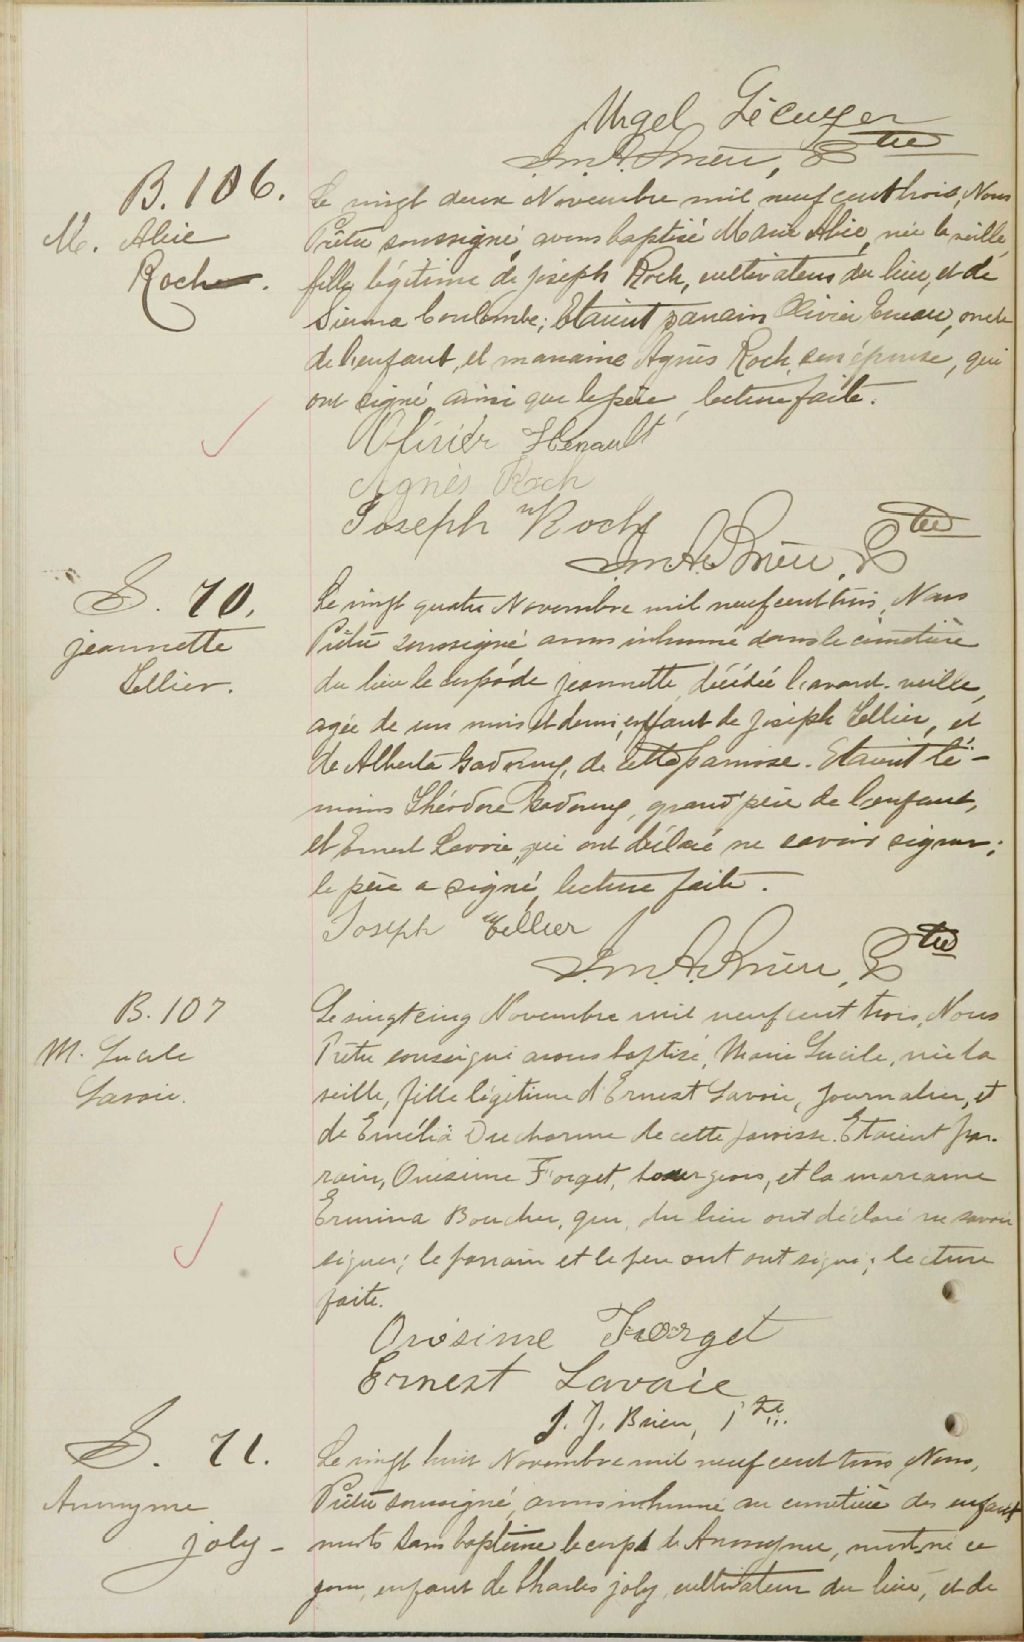 Urgel Lécuyer
J.M.A. Brien, Ptre
B. 106.
M. Alice
Roch.
Le vingt deux Novembre mil neuf cent trois, Nous
Prêtre soussigné, avons baptisé Marie Alice, née la veille
fille légitime de Joseph Roch, cultivateur du lieu, et de
Coulombe; Etaient parrain Olivier oncle
de l'enfant, et marraine Agnès Roch, son épouse, qui
ont signé, ainsi que le père, lecture faite.
Olivier Henault
Agnès Roch
Joseph Roch
J.M.A. Brien, Ptre
S. 70.
jeannette
Tellier.
Le vingt quatre Novembre mil neuf cent trois, Nous
Prêtre soussigné avons inhumé dans le cimetière
du lieu le corps de jeannette, décédée l'avant-veille,
agée de un mois et demi, enfant de Joseph Tellier, et
de Alberta Gadoury, de cette paroisse. Etaient té-
moins Théodore Gadoury, grand père de l'enfant,
et Ernest Lavoie, qui ont déclaré ne savoir signer;
le père a signé, lecture faite.
Joseph Tellier
J.M.A. Brien, Ptre
B. 107
M. Lucile
Lavoie.
Le vingt cinq Novembre mil neuf cent trois, Nous
Prêtre soussigné avons baptisé, Marie Lucile, née la
veille, fille légitime d'Ernest Lavoie, Journalier, et
de Emélia Ducharme de cette paroisse. Etaient par-
rain, Onésime Forget, bourgeois, et la marraine
Ermina Boucher, qui, du lieu ont déclaré ne savoir
signer; le parrain et le père ont ont signé; lecture
faite.
Onésime Forget
Ernest Lavoie
J. J. Brien, Ptre
S. 71.
Anonyme
joly -
Le vingt huit Novembre mil neuf cent trois, Nous,
Prêtre soussigné, avons inhumé au cimetière des enfants
morts sans baptême le corps de Anonyme, mort-né ce
jour, enfant de Charles joly, cultivateur du lieu, et de